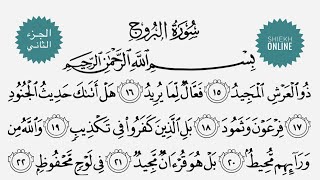 الجزء الثاني
سُورَةُ الْبُرُوجِ
SHIEKH ONLINE
بِسْمِ اللَّهِ الرَّحْمَٰنِ الرَّحِيمِ
ذُو الْعَرْشِ الْمَجِيدُ ١٥ فَعَّالٌ لِّمَا يُرِيدُ ١٦ هَلْ أَتَىٰكَ حَدِيثُ الْجُنُودِ
١٧ فِرْعَوْنَ وَثَمُودَ ١٨ بَلِ الَّذِينَ كَفَرُوا فِي تَكْذِيبٍ ١٩ وَاللَّهُ مِن
وَرَآئِهِم مُّحِيطٌ ٢٠ بَلْ هُوَ قُرْءَانٌ مَّجِيدٌ ٢١ فِي لَوْحٍ مَّحْفُوظٍ ٢٢